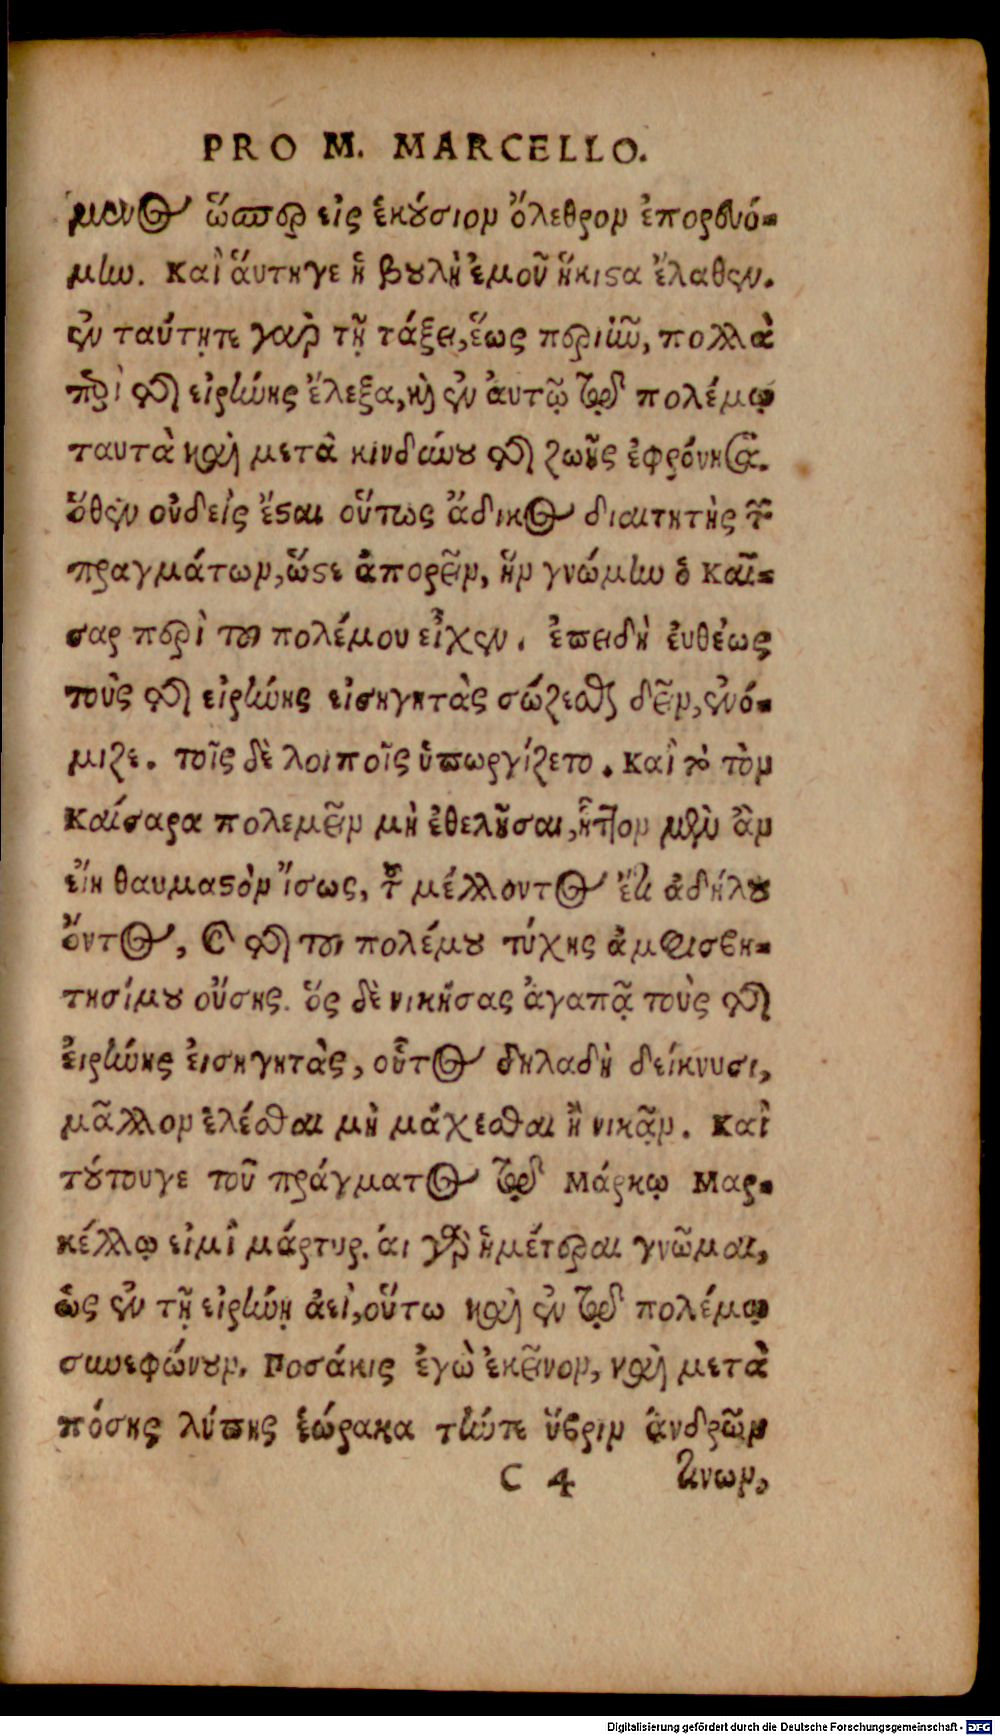 PRO M. MARCELLO.
μενος ὥσπερ εἰς ἑκούσιον ὄλεθρον ἐπορευό-
μην. Καὶ ἅυτηγε ἡ βουλὴ ἐμοῦ ἥκιστα ἔλαθεν.
ἐν ταύτῃτε γαρ τῇ τάξει, ἕως περιῆν, πολλὰ
περὶ της εἰρήνης ἔλεξα, καὶ ἐν ἀυτῷ τῷ πολέμῳ
ταυτὰ καὶ μετὰ κινδύνου της ζωῆς ἐφρόνησα.
ὅθεν οὐδεὶς ἔσται οὕτως ἄδικος διαιτητὴς τῶν
πραγμάτων, ὥστε ἀπορεῖν, ἣν γνώμην ὁ Καῖ-
σαρ περὶ του πολέμου εἶχεν. ἐπειδὴ ἐυθέως
τοὺς της εἰρήνης εἰσηγητὰς σώζεσθαι δεῖν, ἐνό-
μιζε. τοῖς δὲ λοιποῖς ὑπωργίζετο. Καὶ τὸ τὸν
Καίσαρα πολεμεῖν μὴ ἐθελῆσαι, ἧττον μὲν ἂν
εἴη θαυμαστὸν ἴσως, τοῦ μέλλοντος ἔτι ἀδήλου
ὄντος, καὶ της του πολέμου τύχης ἀμφισβη-
τησίμου οὔσης. ὅς δὲ νικήσας ἀγαπᾷ τοὺς της
ἐιρήνης ἐισηγητὰς, οὗτος δηλαδὴ δείκνυσι,
μᾶλλον ἑλέσθαι μὴ μάχεσθαι ἢ νικᾷν. Καὶ
τούτουγε τοῦ πράγματος τῷ Μάρκῳ Μαρ-
κέλλῳ εἰμὶ μάρτυρ. ἁι γὰρ ἡμέτεραι γνῶμαι,
ὡς ἐν τῇ εἰρήνῃ ἀεὶ, οὕτω καὶ ἐν τῷ πολέμῳ
συνεφώνουν. Ποσάκις ἐγὼ ἐκεῖνον, καὶ μετὰ
πόσης λύπης ἑώρακα τήντε ὕβριν ἀνδρῶν
C 4 τινων,
Digitalisierung gefördert durch die Deutsche Forschungsgemeinschaft - DFG